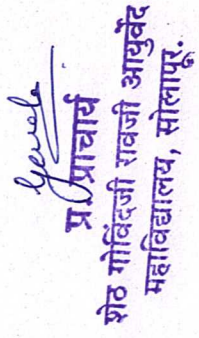 प्र. प्राचार्य
शेठ गोविंदजी रावजी आयुर्वेद
महाविद्यालय, सोलापूर.